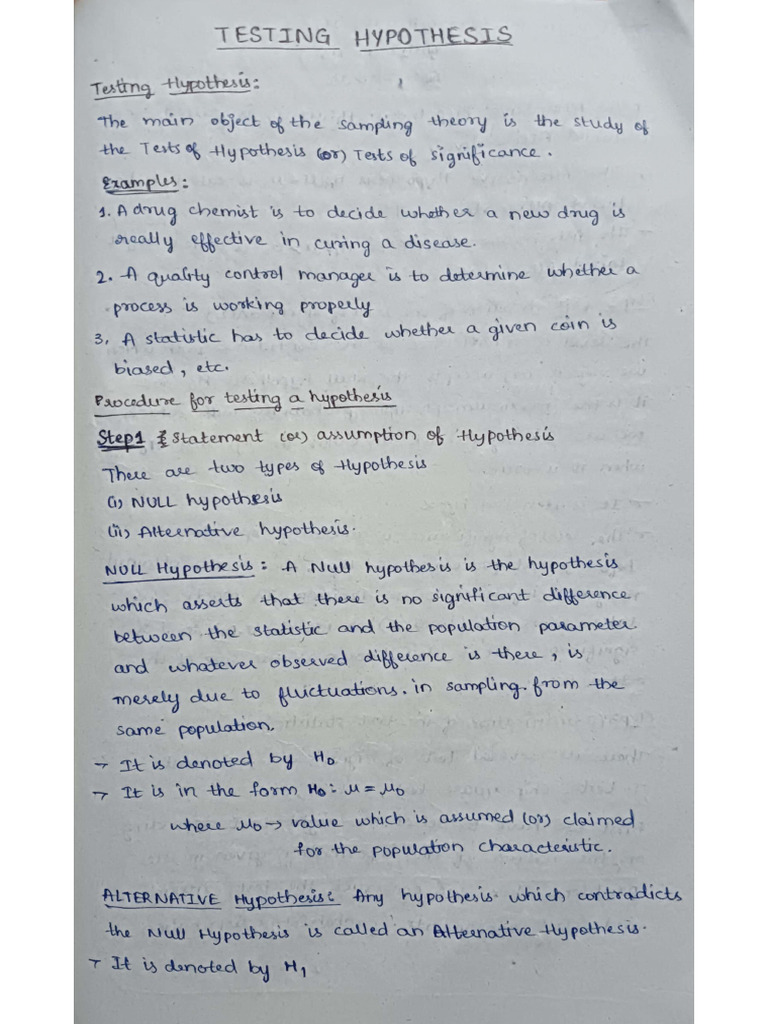 TESTING HYPOTHESIS
Testing Hypothesis:
The main object of the sampling theory is the study of
the Tests of Hypothesis (or) Tests of significance.
Examples:
1. A drug chemist is to decide whether a new drug is
really effective in curing a disease.
2. A quality control manager is to determine whether a
process is working properly
3. A statistic has to decide whether a given coin is
biased, etc.
Procedure for testing a hypothesis
Step1 : Statement (or) assumption of Hypothesis
There are two types of Hypothesis
(i) NULL hypothesis
(ii) Alternative hypothesis.
NULL Hypothesis: A Null hypothesis is the hypothesis
which asserts that there is no significant difference
between the statistic and the population parameter
and whatever observed difference is there, is
merely due to fluctuations. in sampling. from the
same population.
→ It is denoted by H₀
→ It is in the form H₀: μ = μ₀
where μ₀ → value which is assumed (or) claimed
for the population characteristic.
ALTERNATIVE Hypothesis: Any hypothesis which contradicts
the Null Hypothesis is called an Alternative Hypothesis.
→ It is denoted by H₁